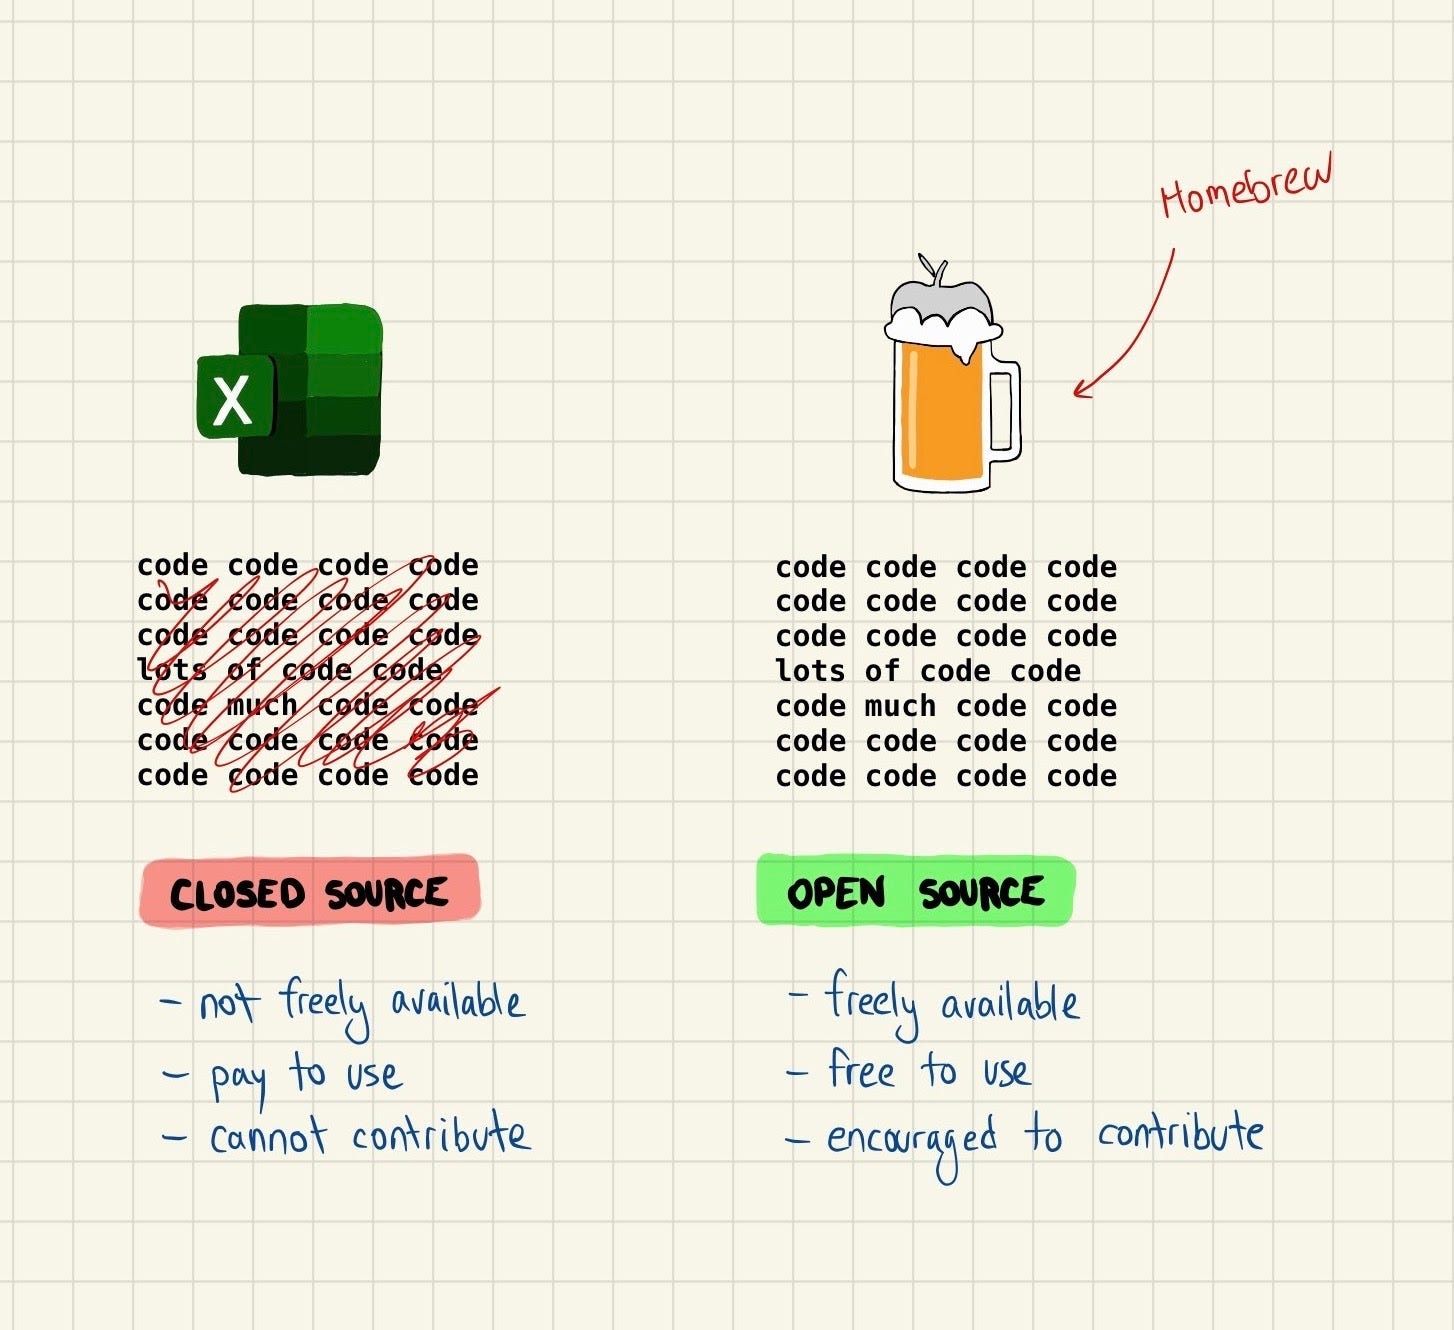 Homebrew
X
code code code code
code code code code
code code code code
lots of code code
code much code code
code code code code
code code code code
CLOSED SOURCE
- not freely available
- pay to use
- cannot contribute
code code code code
code code code code
code code code code
lots of code code
code much code code
code code code code
code code code code
OPEN SOURCE
- freely available
- free to use
- encouraged to contribute